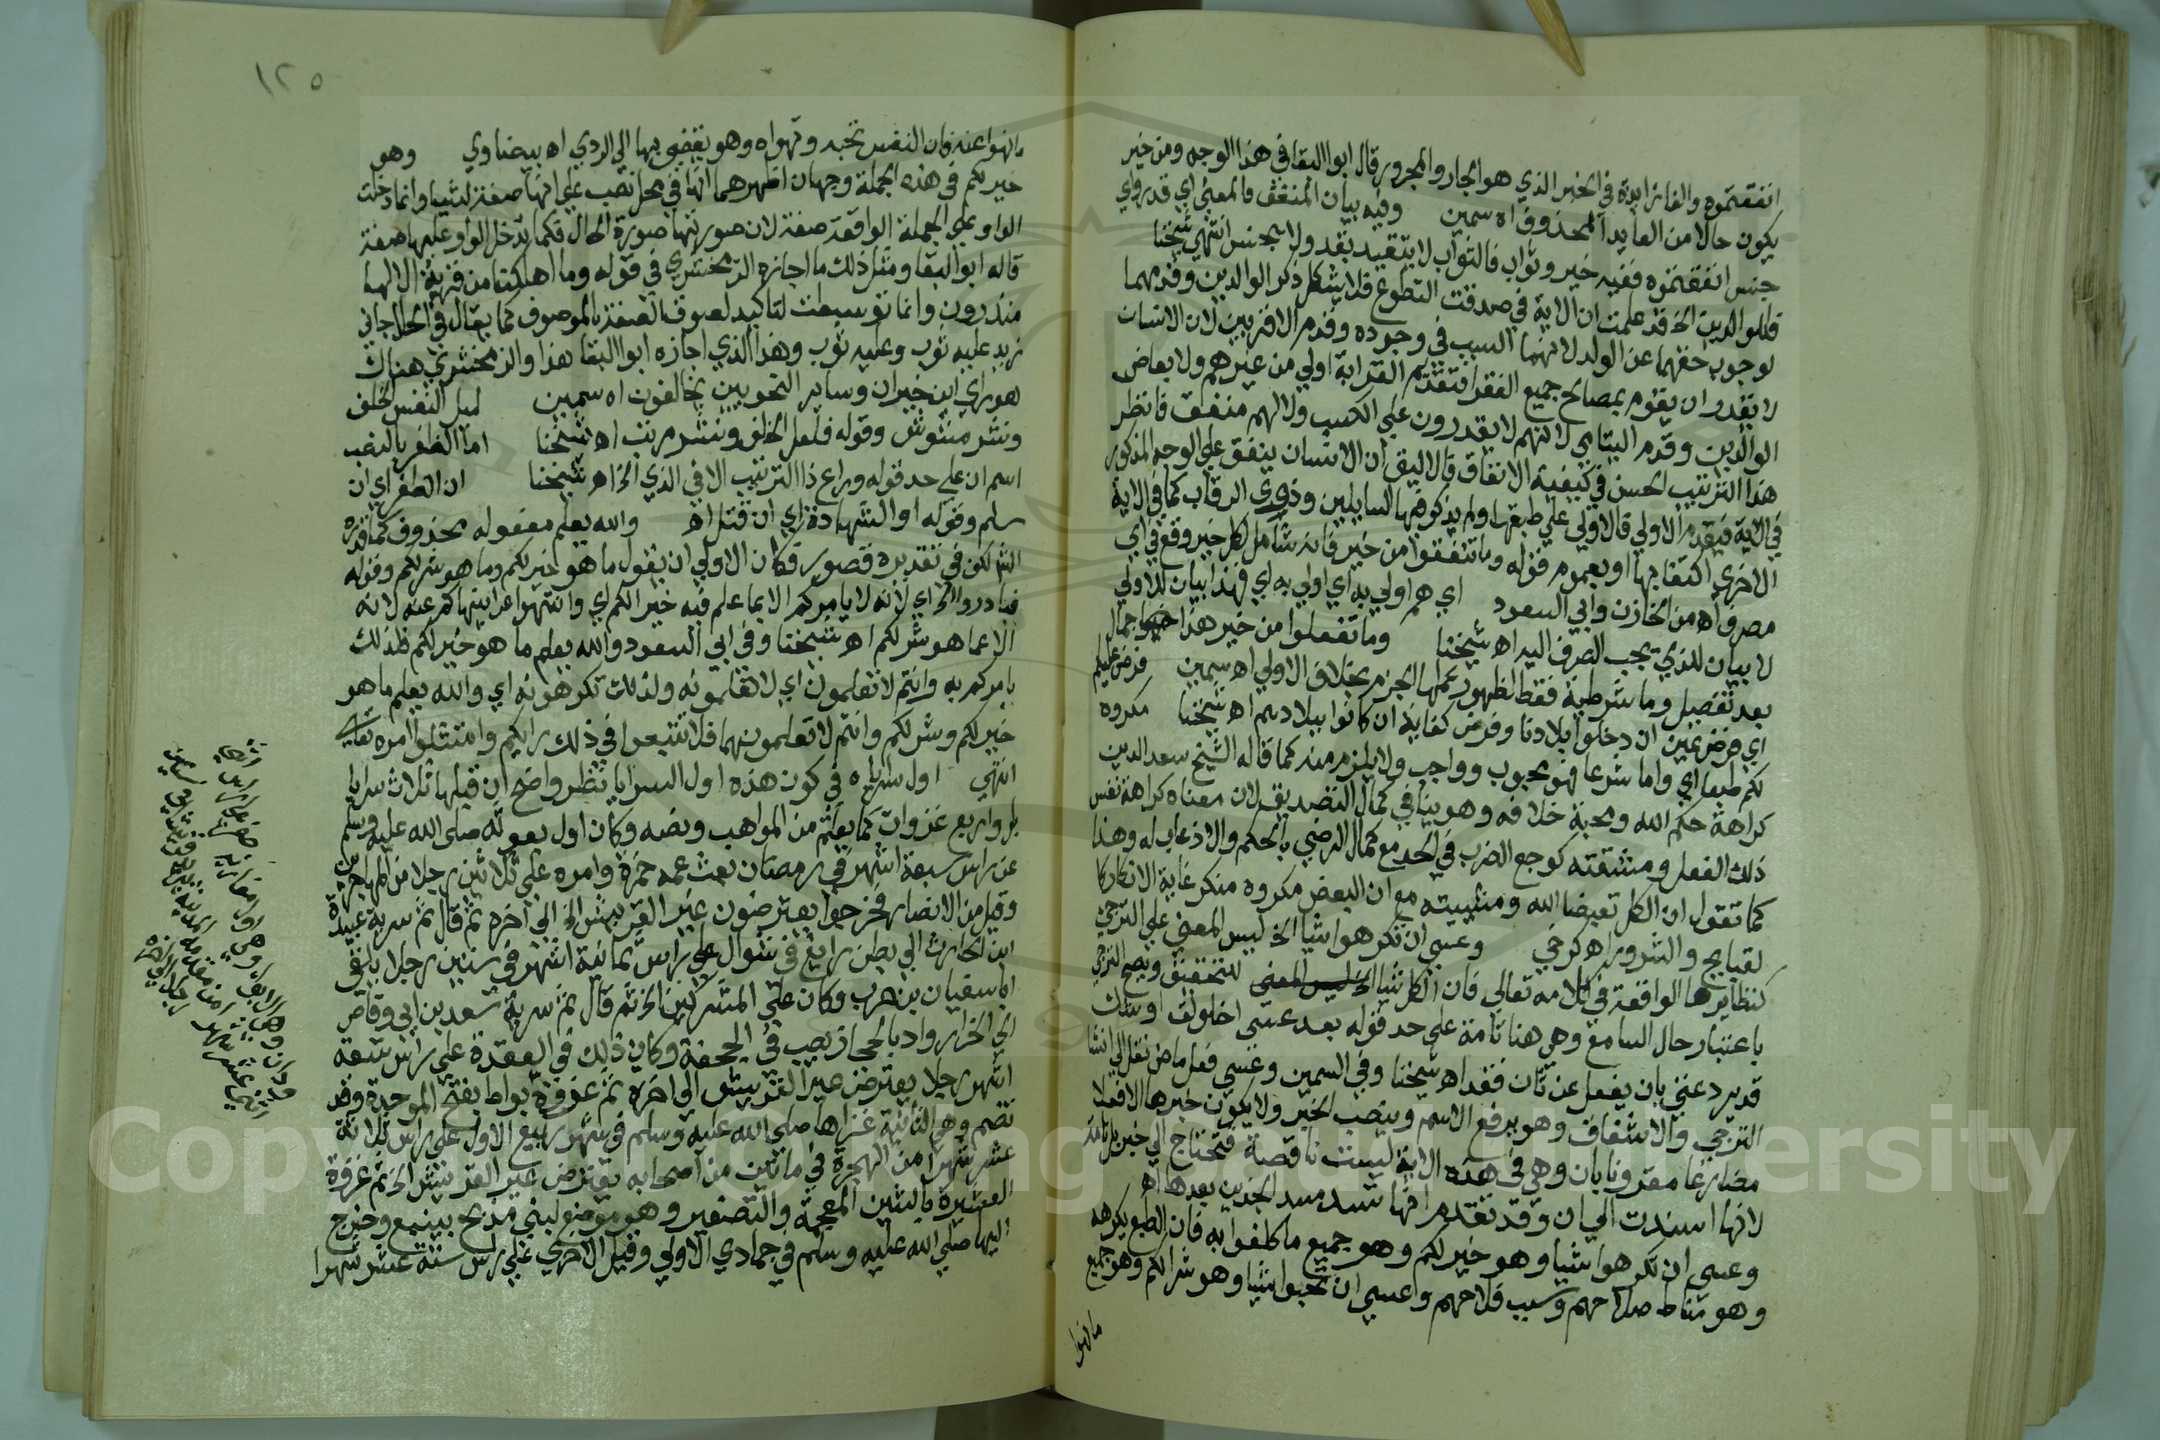 انفقتموه والفا زايدة في الخبر الذي هو الجار والمجرور قال ابوا البقا في هذا الوجه ومن خير
يكون حالا من العايد المحذوف اه سمين وفيه بيان المنفق والمعنى اي قدر واي
جنس انفقتموه ففيه خير وثواب فالثواب لا يتقيد بقدر ولا بجنس انتهي شيخنا
فللوالدين الخ قد علمت ان الاية في صدقت التطوع فلا يشكل ذكر الوالدين وقدمهما
لوجوب حقهما عن الولد لانهما السبب في وجوده وقدم الاقربين لان الانسان
لا يقدر ان يقوم بمصالح جميع الفقرا فتقديم القرابة اولي من غيرهم ولا يعارض
الوالدين وقدم اليتامي لانهم لا يقدرون علي الكسب ولا لهم منفق فانظر
هذا الترتيب الحسن في كيفية الانفاق قال اليق ان الانسان ينفق علي الوجه المذكور
في الاية فيقدم الاولي فالاولي علي طبقها ولم يذكر فيها السايلين وذوي الرقاب كما في الاية
الاخري اكتفا بها او بعموم قوله وما تنفقوا من خير فانه شامل لكل خير وقع في اي
مصرف اه من الخازن وابي السعود اي هم اولي به اي اولي به اي فهذا بيان للاولي
لا بيان للذي يجب الصرف اليه اه شيخنا وما تفعلوا من خير هذا اجمال
بعد تفصيل وما شرطية فقط لظهور عملها الجزم بخلاف الاولي اه سمين فرض عليكم
اي فرض عين ان دخلوا بلادنا وفرض كفاية ان كانوا ببلادهم اه شيخنا مكروه
لكم طبعا اي واما شرعا فهو محبوب وواجب ولا يلزم منه كما قاله الشيخ سعد الدين
كراهة حكم الله ومحبة خلافه وهو ينافي كمال التصديق لان معناه كراهة نفس
ذلك الفعل ومشقته كوجع الضرب في الحد مع كمال الرضي بالحكم والاذعان له وهذا
كما تقول ان الكل تعرضا الله ومشيته مع ان البعض مكروه منكر غاية الانكار كا
لقبايح والشرور اه كرخي وعسي ان تكرهوا شيا الخ ليس المعني علي الترجي
كنظايرها الواقعة في كلامه تعالي فان الكل للتحقيق ويصح الترجي
باعتبار حال السامع وهي هنا تامة علي حد قوله بعد عسي اخلولق اوشك
قد يرد غني بان يفعل عن ثان فقد اه شيخنا وفي السمين وعسي فعل ماض نقل الي انشا
الترجي والاشفاق وهو يرفع الاسم وينصب الخبر ولا يكون خبرها الا فعلا
مضارعا مقرونا بان وهي في هذه الاية ليست ناقصة فتحتاج الي خبر بل تامة
لانها اسندت الي ان وقد تقدم انها تسد مسد الجزين بعدها اه
وعسي ان تكرهوا شيا وهو خير لكم وهو جميع ما كلفوا به فان الطبع يكرهه
وهو مناط صلاحهم وسبب فلاحهم وعسي ان تحبوا شيا وهو شر لكم وهو جميع
ما نهوا
١٢٥
ما نهوا عنه فان النفس تحبه وتهواه وهو يفضي بها الي الردي اه بيضاوي وهو
خير لكم في هذه الجملة وجهان اظهرهما انها في محل نصب علي انها صفة لشيا وانما دخلت
الواو علي الجملة الواقعة صفة لان صورتها صورة الحال فكما تدخل الواو عليها صفة
قاله ابوا البقا ومثل ذلك ما اجازه الزمخشري في قوله وما اهلكنا من قرية الا لها
منذرون وانما توسطت لتاكيد لصوق الصفة بالموصوف كما يقال في الحال جاني
زيد عليه ثوب وعليه ثوب وهذا الذي اجازه ابوا البقا هنا والزمخشري هناك
هو راي ابن خيران وساير النحويين يخالفون اه سمين لميل النفس الخ لف
ونشر مشوش وقوله فلعل الخ لف ونشر مرتب اه شيخنا اما الظفر بالنصب
اسم ان علي حد قوله وراع ذا الترتيب الا في الذي الخ اه شيخنا ان الظفر اي ان
سلم وقوله او الشهادة اي ان قتل اه والله يعلم مفعوله محذوف كما قدره
الش لكن في تقديره قصور فكان الاولي ان يقول ما هو خير لكم وما هو شر لكم وقوله
فبادروا الخ اي لانه لا يامركم الا بما علم فيه خيرا لكم اي وانتهوا عما ينهاكم عنه لانه
الا عما هو شر لكم اه شيخنا وفي ابي السعود والله يعلم ما هو خير لكم فلذلك
يامركم به وانتم لا تعلمون اي لا تعلمونه ولذلك تكرهونه اي والله يعلم ما هو
خير لكم وشر لكم وانتم لا تعلمونهما فلا تتبعوا في ذلك رايكم وامتثلوا امره تعالي
انتهي اول سراياه في كون هذه اول السرايا نظر واضح ان قبلها ثلاث سرايا
بل واربع غزوات كما يعلم من المواهب ونصه وكان اول بعوثه صلي الله عليه وسلم
عن راس سبعة اشهر في رمضان بعث عمه حمزة وامره علي ثلاثين رجلا من المهاجرين
وقيل من الانصار فخرجوا يعترضون عير القريش الخ الي اخره ثم قال ثم سرية عبيدة
ابن الحارث الي بطن رابغ في شوال علي راس ثمانية اشهر في ستين رجلا يلقي
ابا سفيان بن حرب وكان علي المشركين الخ ثم قال ثم سرية سعد بن ابي وقاص
الي الخرار واد بالحجاز يصب في الجحفة وكان ذلك في القعدة علي راس تسعة
اشهر رجلا يعترض عيرا لقريش الي اخره ثم غزوة بواط بفتح الموحدة وقد
تضم وهي الثانية غزاها صلي الله عليه وسلم في شهر ربيع الاول علي راس ثلاثة
عشر شهرا من الهجرة في مائتين من اصحابه يعترض عير القريش الخ ثم غزوة
العشيرة بالشين المعجمة والتصغير وهو موضع لبني مدلج بينبع وخرج
اليها صلي الله عليه وسلم في جمادي الاولي وقيل الاخري علي راس ستة عشر شهرا